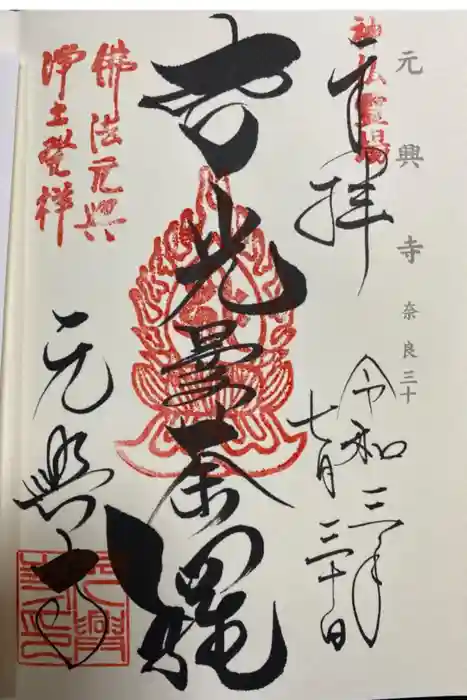 元興寺 奈良三十
神仏霊場
奉拝
令和三年
七月三十日
智光曼荼羅
佛法元興
浄土発祥
元興寺